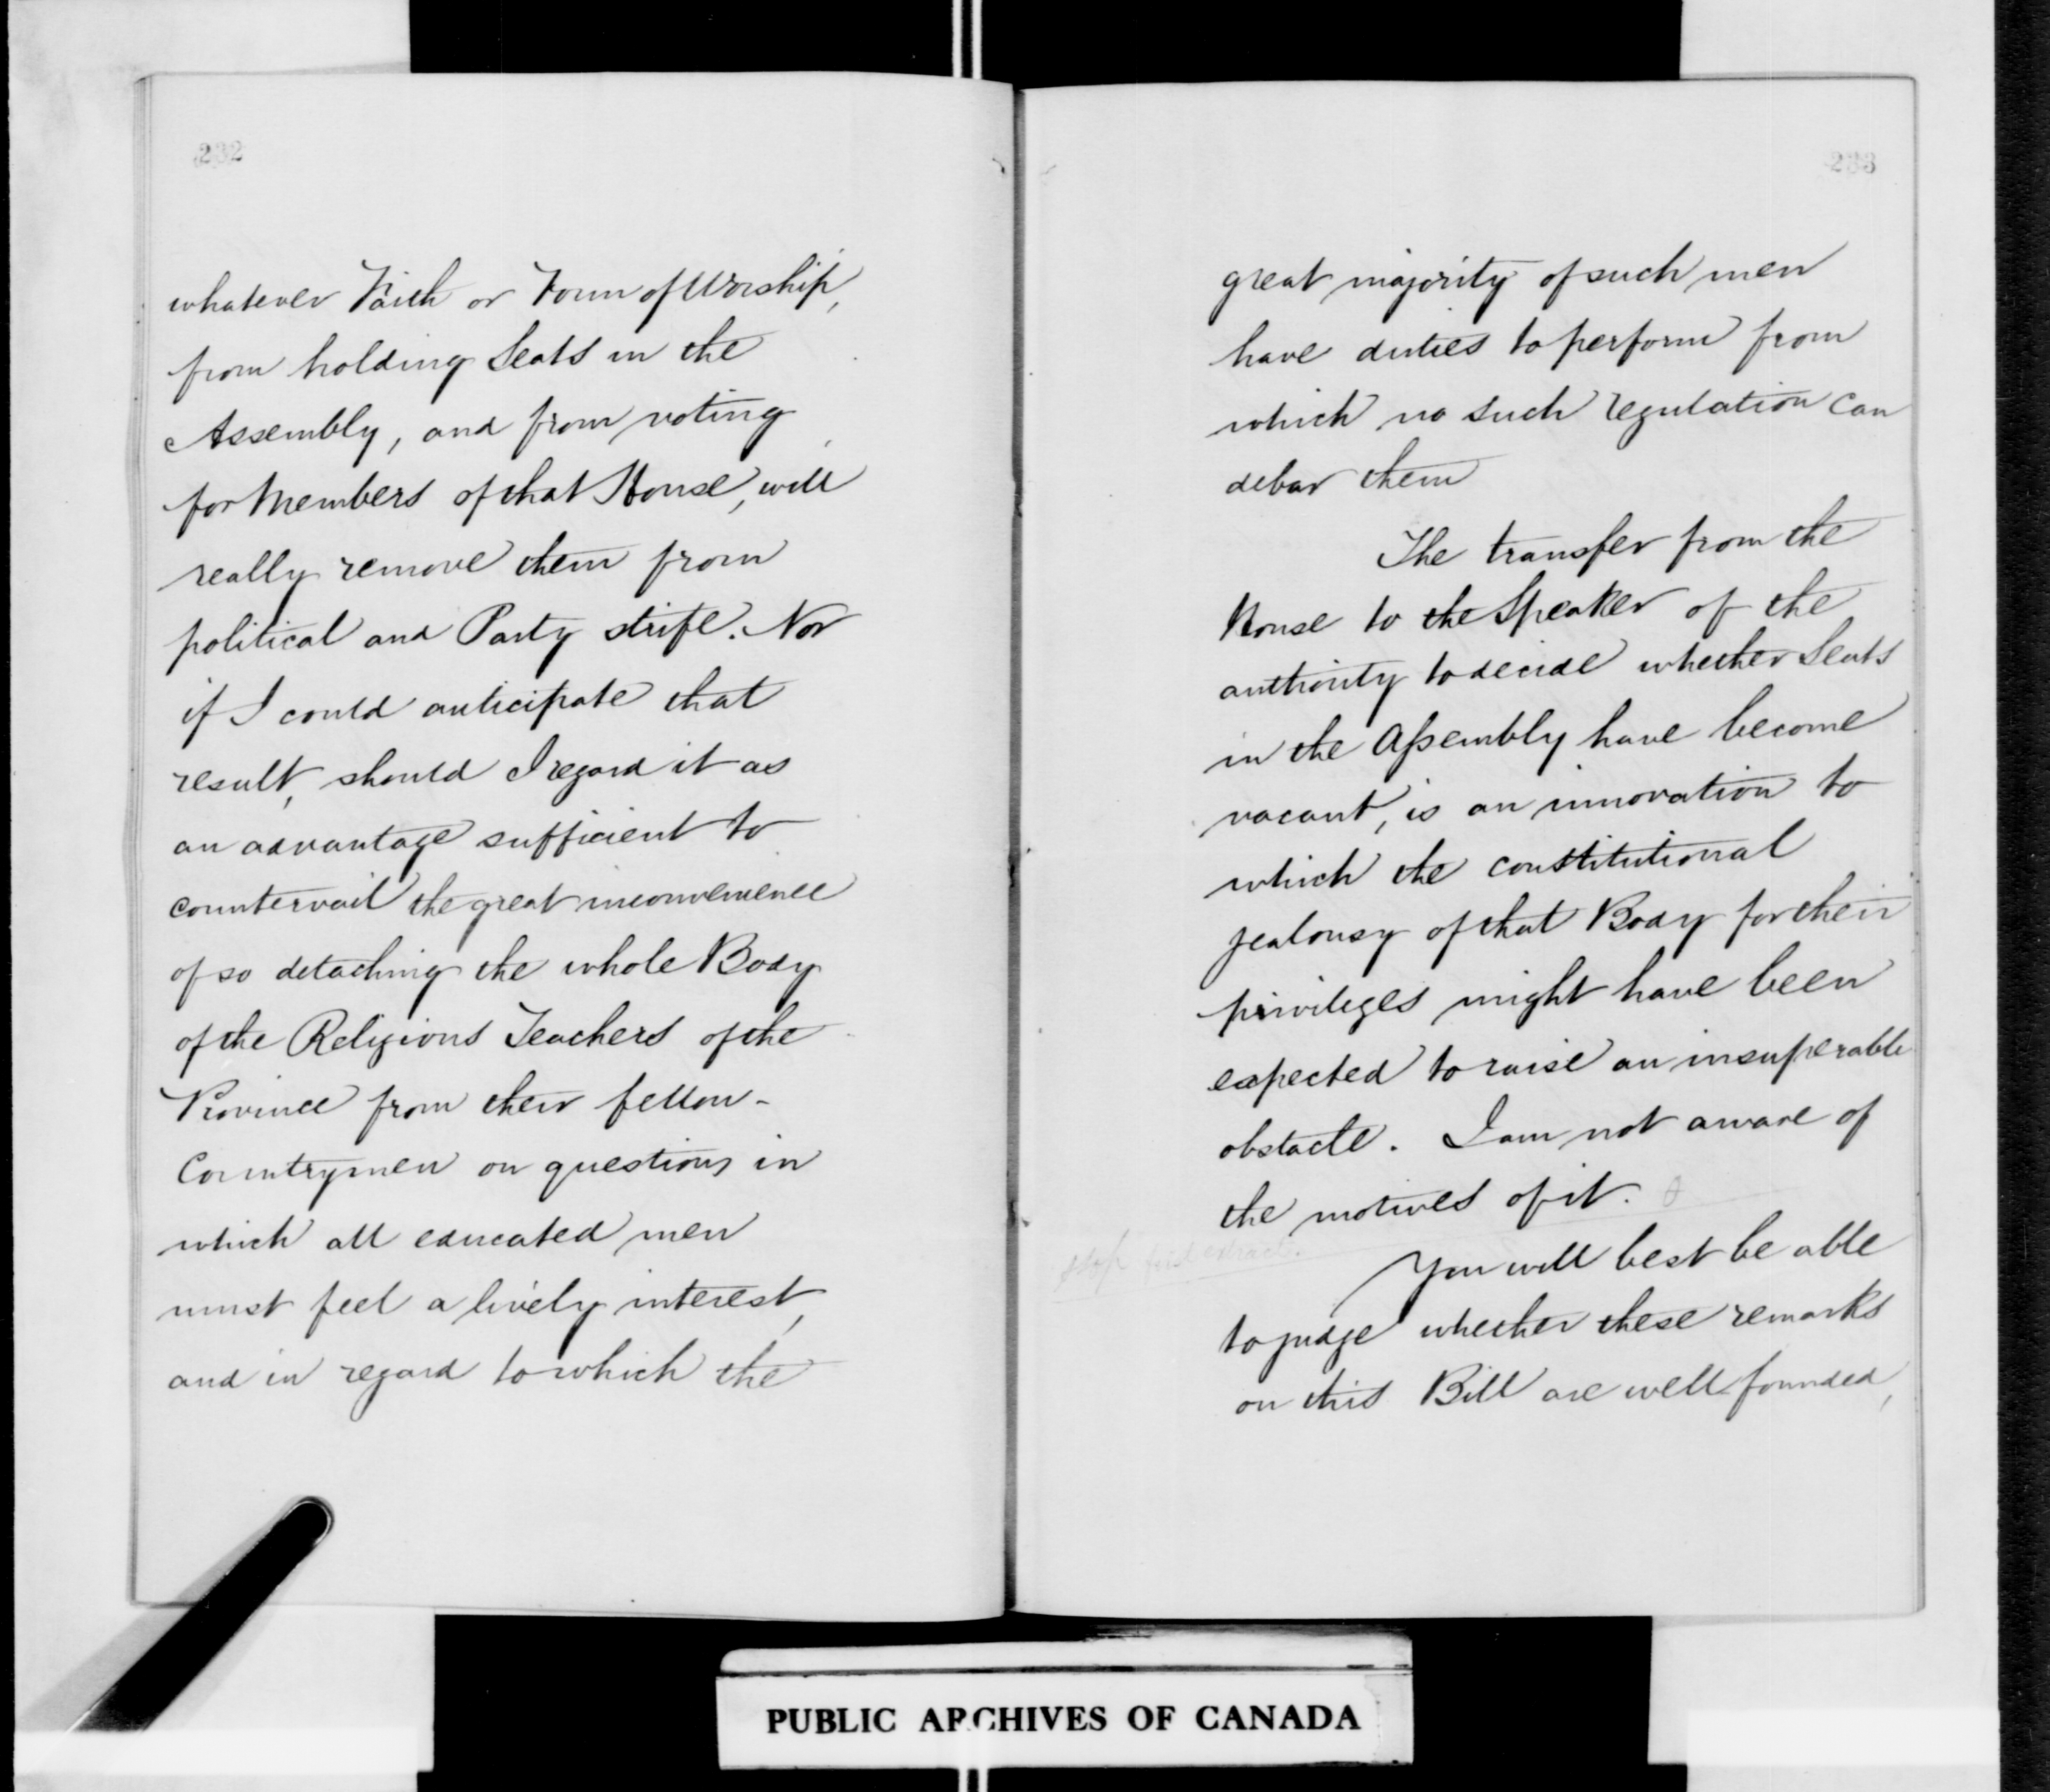 232
whatever Faith or Form of Worship,
from holding Seats in the
Assembly, and from voting
for Members of that House, will
really remove them from
political and Party strife. Nor
if I could anticipate that
result, should I regard it as
an advantage sufficient to
countervail the great inconvenience
of so detaching the whole Body
of the Religious Teachers of the
Province from their fellow-
Countrymen on questions in
which all educated men
must feel a lively interest,
and in regard to which the
233
great majority of such men
have duties to perform from
which no such regulation can
debar them
The transfer from the
House to the Speaker of the
authority to decide whether Seats
in the Assembly have become
vacant, is an innovation to
which the constitutional
jealousy of that Body for their
privileges might have been
expected to raise an insuperable
obstacle. I am not aware of
the motives of it.
stop
You will best be able
to judge whether these remarks
on this Bill are well founded,
PUBLIC ARCHIVES OF CANADA